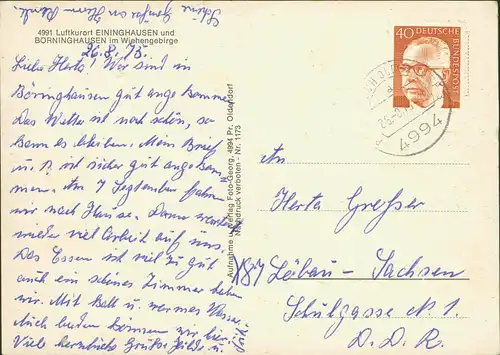 Schöne Grüße an Herrn
4991 Luftkurort EININGHAUSEN und
BÖRNINGHAUSEN im Wiehengebirge
26.8.75.
Liebe Herta! Wir sind in
Börninghausen gut angekommen.
Das Wetter ist noch schön, so
kann es bleiben. Mein Brief
u. P. ist sicher gut angekom
men. Am 7 September fahren
wir nach Hause. Dann wartet
wieder viel Arbeit auf uns.
Das Essen ist viel zu gut
auch ein schönes Zimmer haben
wir. Mit kalt u. warmes Wasser.
Auch baden können wir hier.
Viele herzliche Grüße
Aufnahme u. Verlag Foto-Georg, 4994 Pr. Oldendorf
Nachdruck verboten - Nr. 1173
40
DEUTSCHE
BUNDESPOST
4994
An
Herta Greßer
87 Löbau - Sachsen
Schulgasse N. 1.
D.D.R.